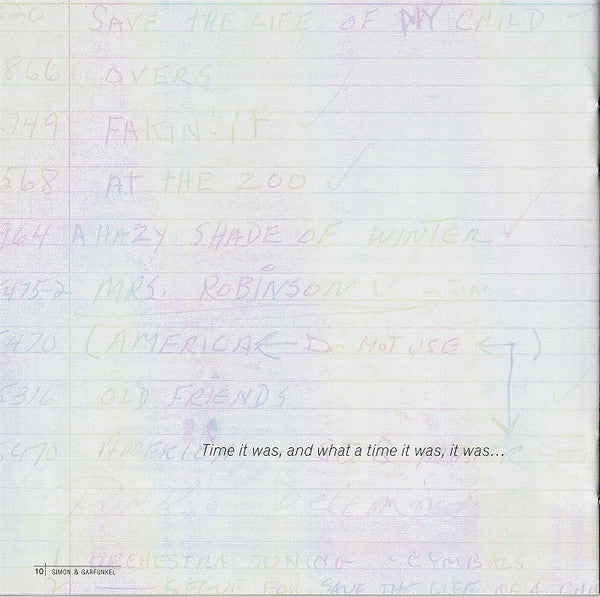 SAVE THE LIFE OF MY CHILD
866 OVERS
749 FAKIN' IT
668 AT THE ZOO
964 A HAZY SHADE OF WINTER
475-2 MRS. ROBINSON
5470 (AMERICA ← DO NOT USE ← )
5316 OLD FRIENDS
5470 AMERICA
Time it was, and what a time it was, it was...
1 ORCHESTRA TUNING - CYMBALS
10 SIMON & GARFUNKEL
2 FOR SAVE THE LIFE OF A